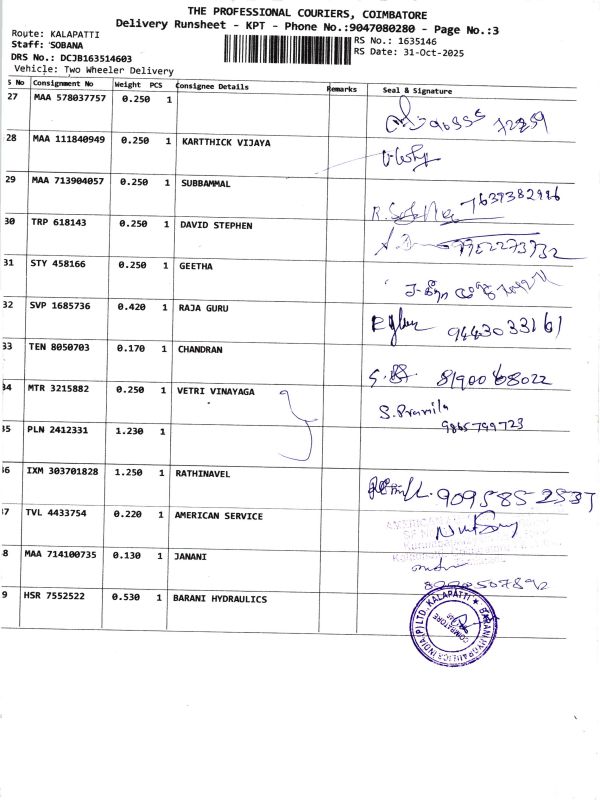 THE PROFESSIONAL COURIERS, COIMBATORE
Delivery Runsheet - KPT - Phone No.:9047080280 - Page No.:3
Route: KALAPATTI
Staff: SOBANA
DRS No.: DCJB163514603
Vehicle: Two Wheeler Delivery
RS No.: 1635146
RS Date: 31-Oct-2025
S No Consignment No Weight PCS Consignee Details Remarks Seal & Signature
27 MAA 578037757 0.250 1
28 MAA 111840949 0.250 1 KARTTHICK VIJAYA
29 MAA 713904057 0.250 1 SUBBAMMAL 7639382986
30 TRP 618143 0.250 1 DAVID STEPHEN
31 STY 458166 0.250 1 GEETHA
32 SVP 1685736 0.420 1 RAJA GURU 9443033161
33 TEN 8050703 0.170 1 CHANDRAN 8190068022
34 MTR 3215882 0.250 1 VETRI VINAYAGA S. Pramila
9865799723
35 PLN 2412331 1.230 1
36 IXM 303701828 1.250 1 RATHINAVEL 9095852537
37 TVL 4433754 0.220 1 AMERICAN SERVICE
8 MAA 714100735 0.130 1 JANANI
9 HSR 7552522 0.530 1 BARANI HYDRAULICS
BARANI HYDRAULICS INDIA (P) LTD. KALAPATTI
COIMBATORE